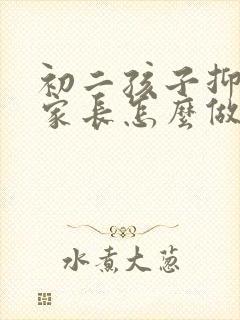 初二孩子抑
家长怎麽做
水煮大葱